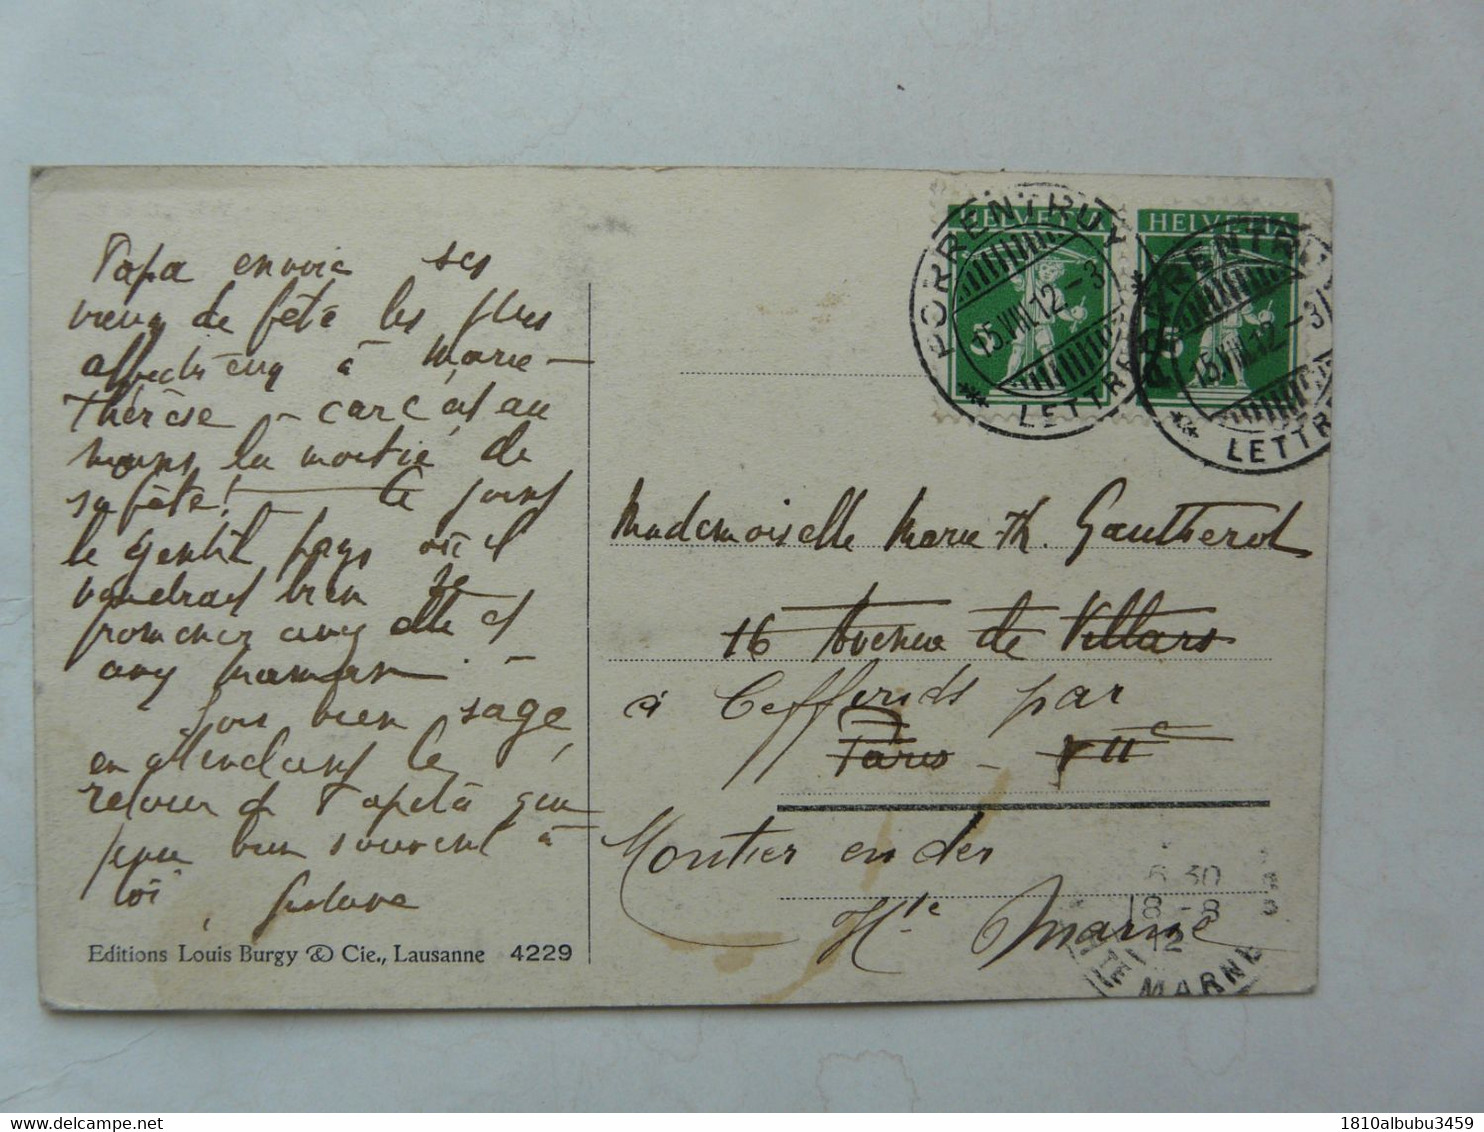 Papa envoie ses
vœux de fête les plus
affectueux à Marie-
Thérèse – car c'est au
moins la moitié de
sa fête! – Ci joint
le gentil pays où il
voudrait bien se
promener avec elle et
avec maman. –
Sois bien sage,
en attendant le
retour de Papeta qui
pense bien souvent à
toi,
Editions Louis Burgy & Cie., Lausanne 4229
HELVETIA
HELVETIA
PORRENTRUY
15.VIII.12-3
LETTRE
PORRENTRU
15.VIII.12-3
LETTR
Mademoiselle Marie-Th. Gautherot
16 Avenue de Villars
à Ceffonds par
Paris – VIIe
Montier en der
Hte Marne
6 30
18-8
12
HTE MARNE
1810albubu3459